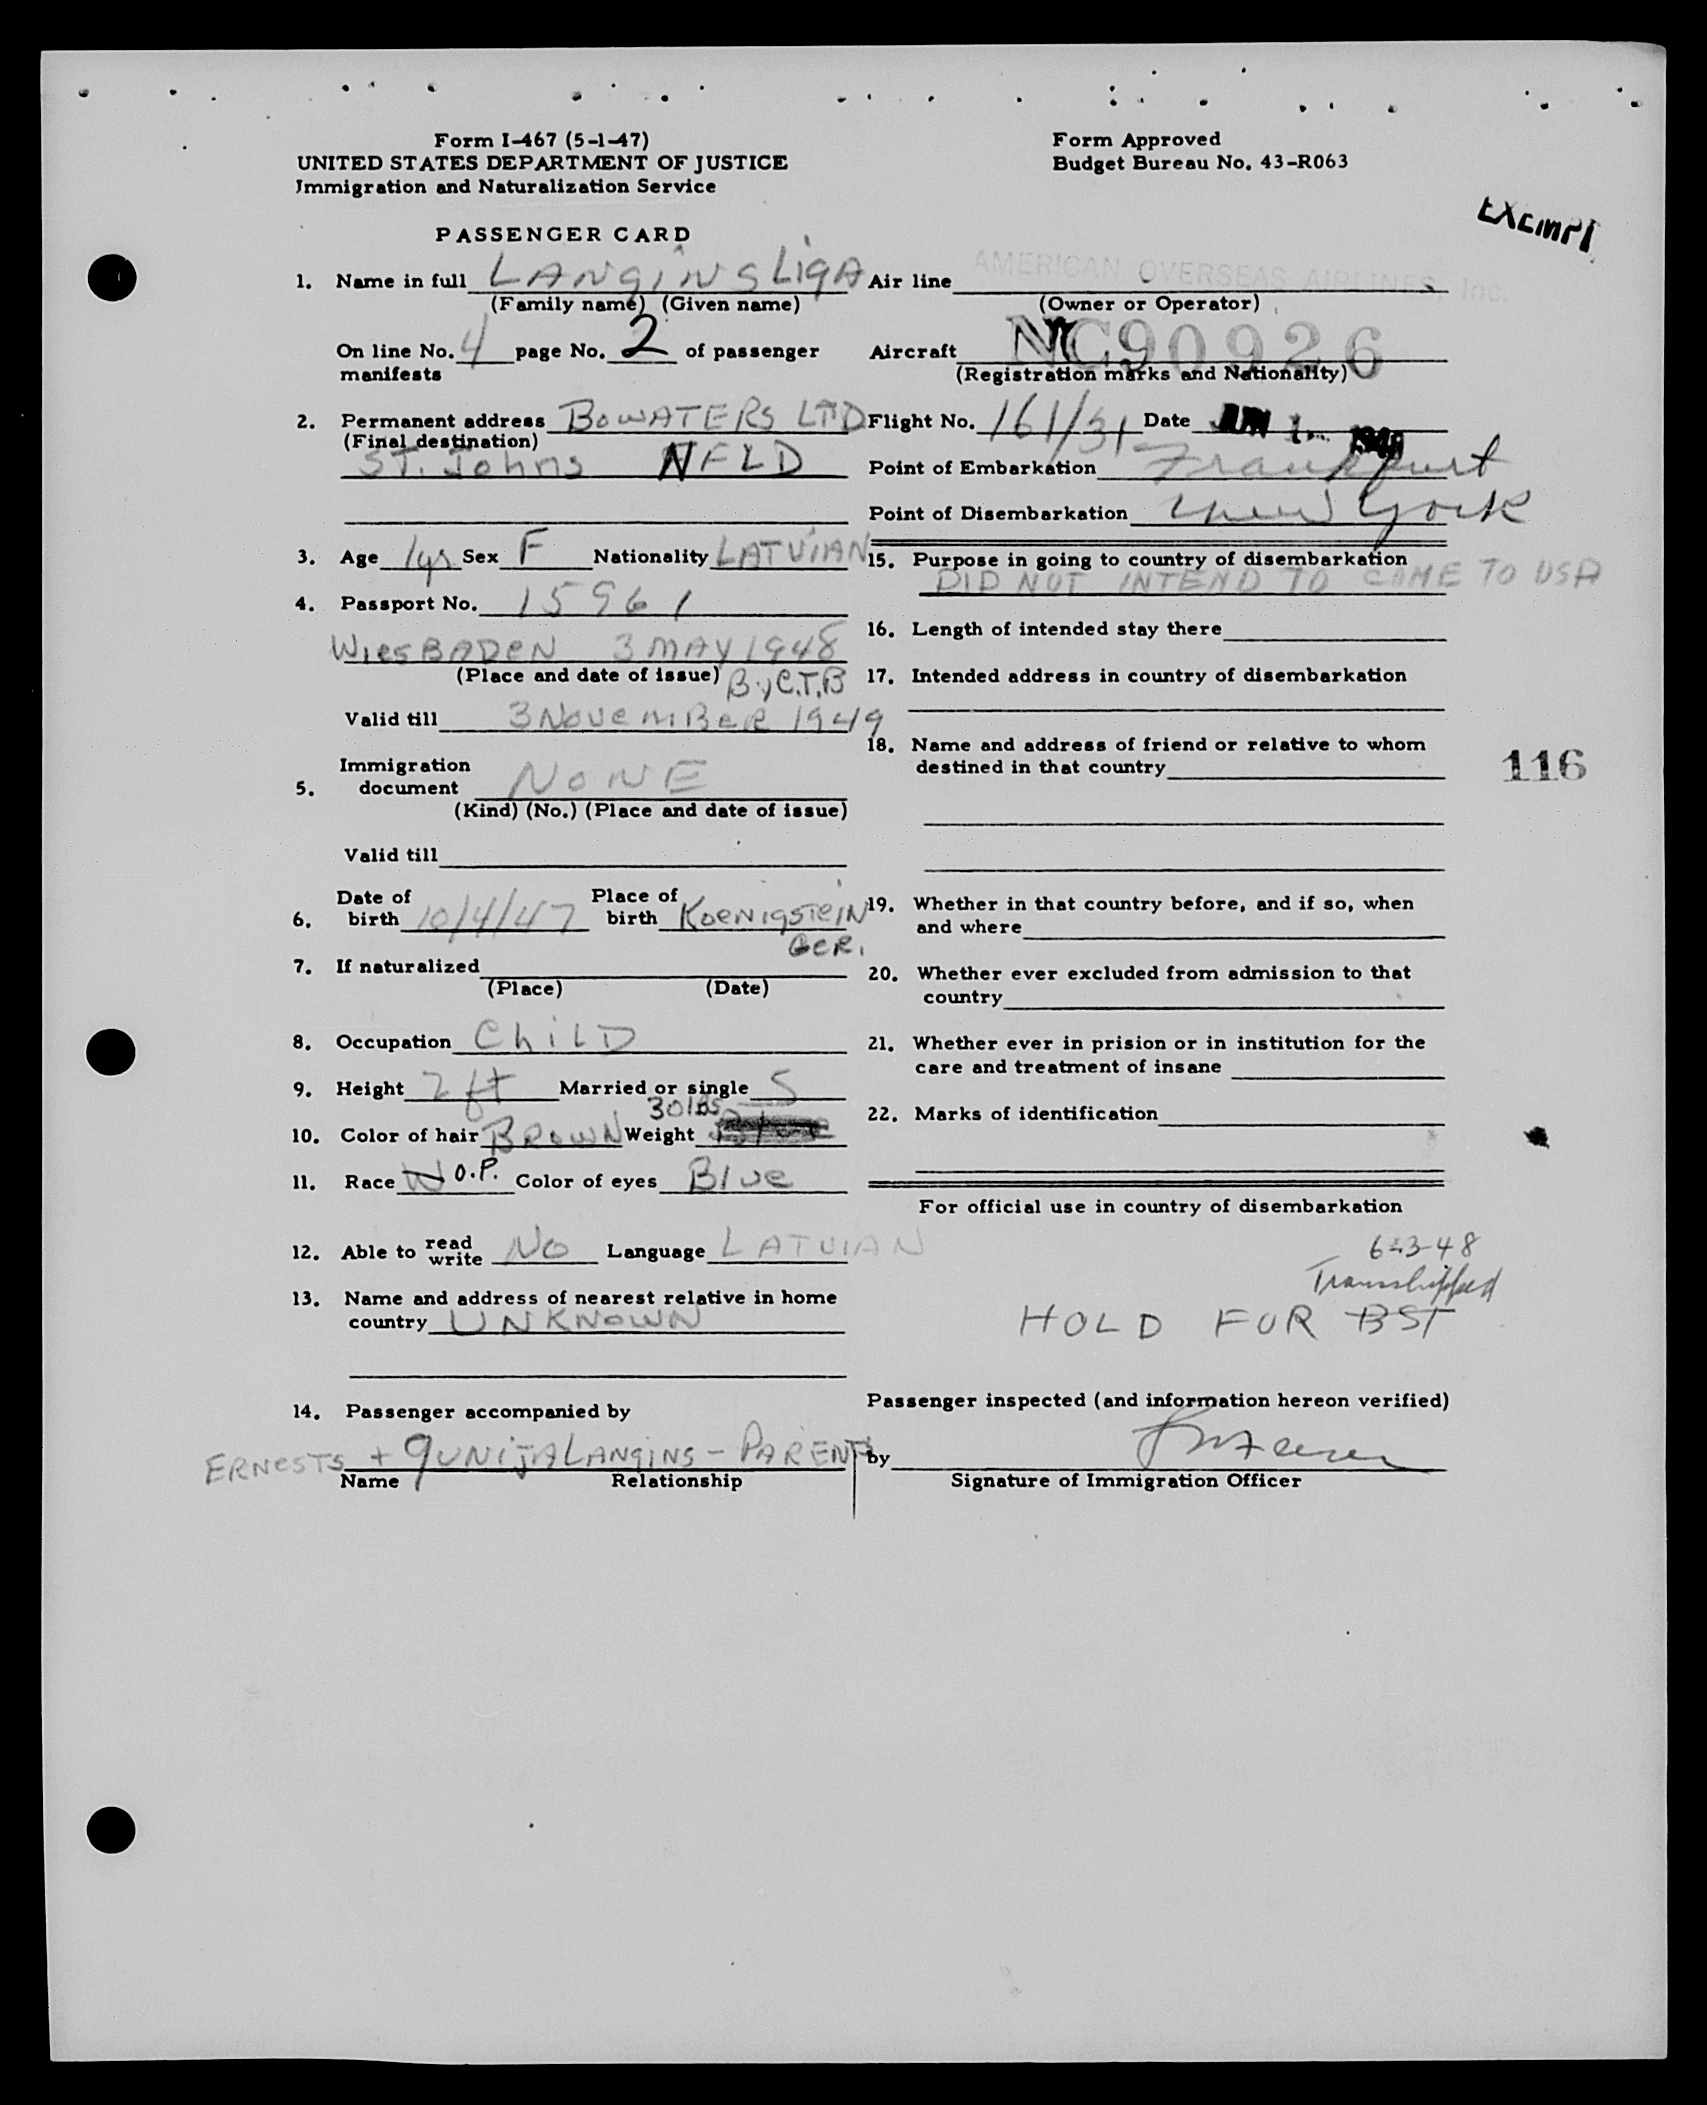 Form I-467 (5-1-47)
UNITED STATES DEPARTMENT OF JUSTICE
Immigration and Naturalization Service
Form Approved
Budget Bureau No. 43-R063
EXEMPT
PASSENGER CARD
1. Name in full LANGINS LIGA
(Family name) (Given name)
On line No. 4 page No. 2 of passenger
manifests
2. Permanent address BOWATERS LTD
(Final destination)
ST. Johns NFLD
3. Age 1yr Sex F Nationality LATVIAN
4. Passport No. 15961
WIESBADEN 3 MAY 1948
(Place and date of issue) By C.T.B
Valid till 3 NOVEMBER 1949
Immigration
5. document NONE
(Kind) (No.) (Place and date of issue)
Valid till
Date of Place of
6. birth 10/4/47 birth KOENIGSTEIN
GER.
7. If naturalized
(Place) (Date)
8. Occupation CHILD
9. Height 2 ft Married or single S
30 lbs
10. Color of hair BROWN Weight
11. Race W O.P. Color of eyes Blue
12. Able to read
write NO Language LATVIAN
13. Name and address of nearest relative in home
country UNKNOWN
14. Passenger accompanied by
ERNESTS + GUNIJA LANGINS - PARENTS
Name Relationship
AMERICAN OVERSEAS AIRLINES, Inc.
Air line
(Owner or Operator)
Aircraft NC90926
(Registration marks and Nationality)
Flight No. 161/31 Date JUN 1 1948
Point of Embarkation Frankfurt
Point of Disembarkation New York
15. Purpose in going to country of disembarkation
DID NOT INTEND TO COME TO USA
16. Length of intended stay there
17. Intended address in country of disembarkation
18. Name and address of friend or relative to whom
destined in that country
116
19. Whether in that country before, and if so, when
and where
20. Whether ever excluded from admission to that
country
21. Whether ever in prision or in institution for the
care and treatment of insane
22. Marks of identification
For official use in country of disembarkation
6-3-48
Transshipped
HOLD FOR BSI
Passenger inspected (and information hereon verified)
by
Signature of Immigration Officer